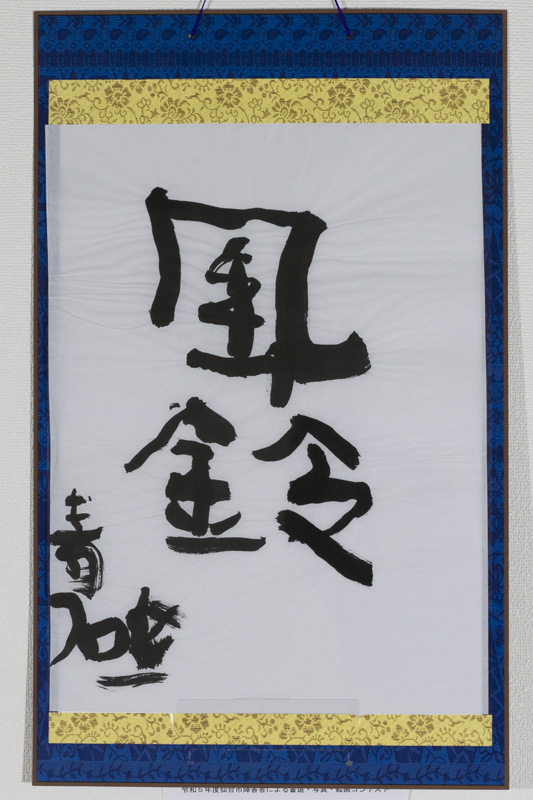 風
鈴
令和５年度仙台市障害者による書道・写真・絵画コンテスト